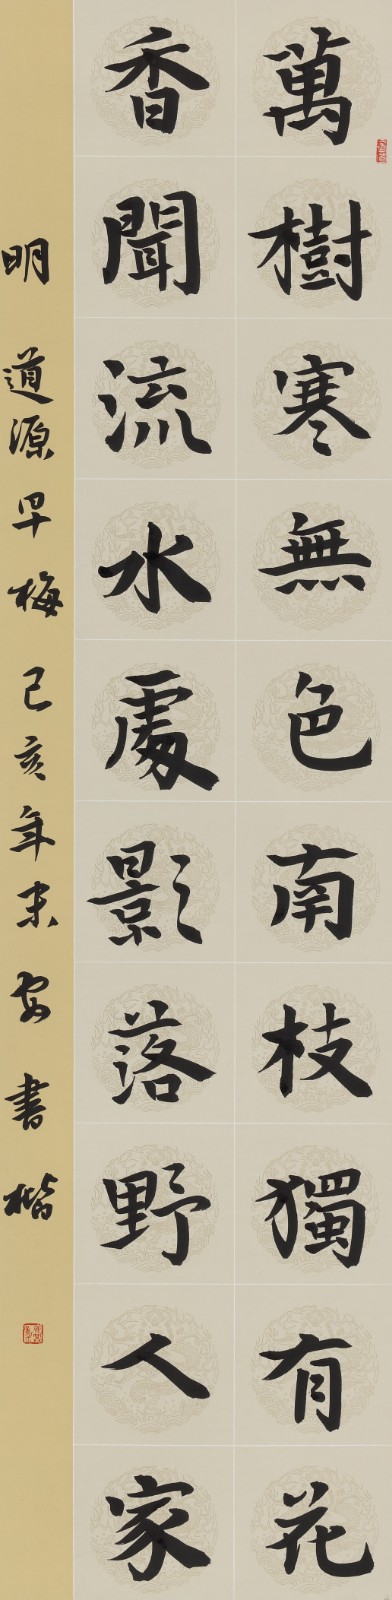 萬樹寒無色南枝獨有花
香聞流水處影落野人家
明道源早梅己亥年末安書楷